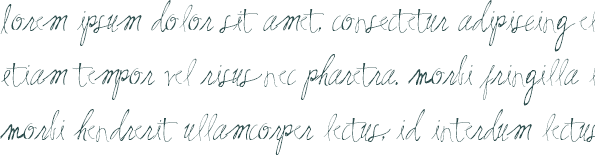 lorem ipsum dolor sit amet, consectetur adipiscing el
etiam tempor vel risus nec pharetra. morbi fringilla
morbi hendrerit ullamcorper lectus, id interdum lectus